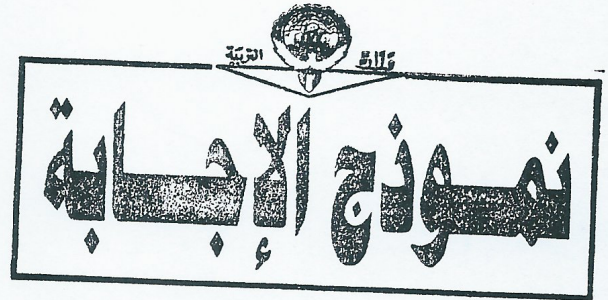 وزارة التربية
نموذج الإجابة